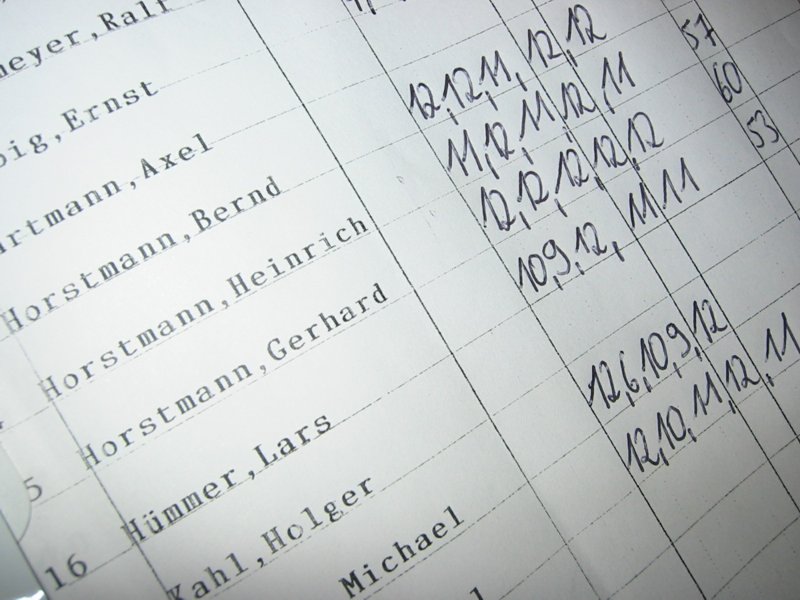 meyer,Ralf
ig,Ernst
rtmann,Axel
Horstmann,Bernd 12,12,11,12,12
Horstmann,Heinrich 11,12,11,12,11 57
5 Horstmann,Gerhard 12,12,12,12,12 60
16 Hümmer,Lars 10,9,12,11 11 53
Kahl,Holger
Michael 12,6,10,9,12
12,10,11,12,11